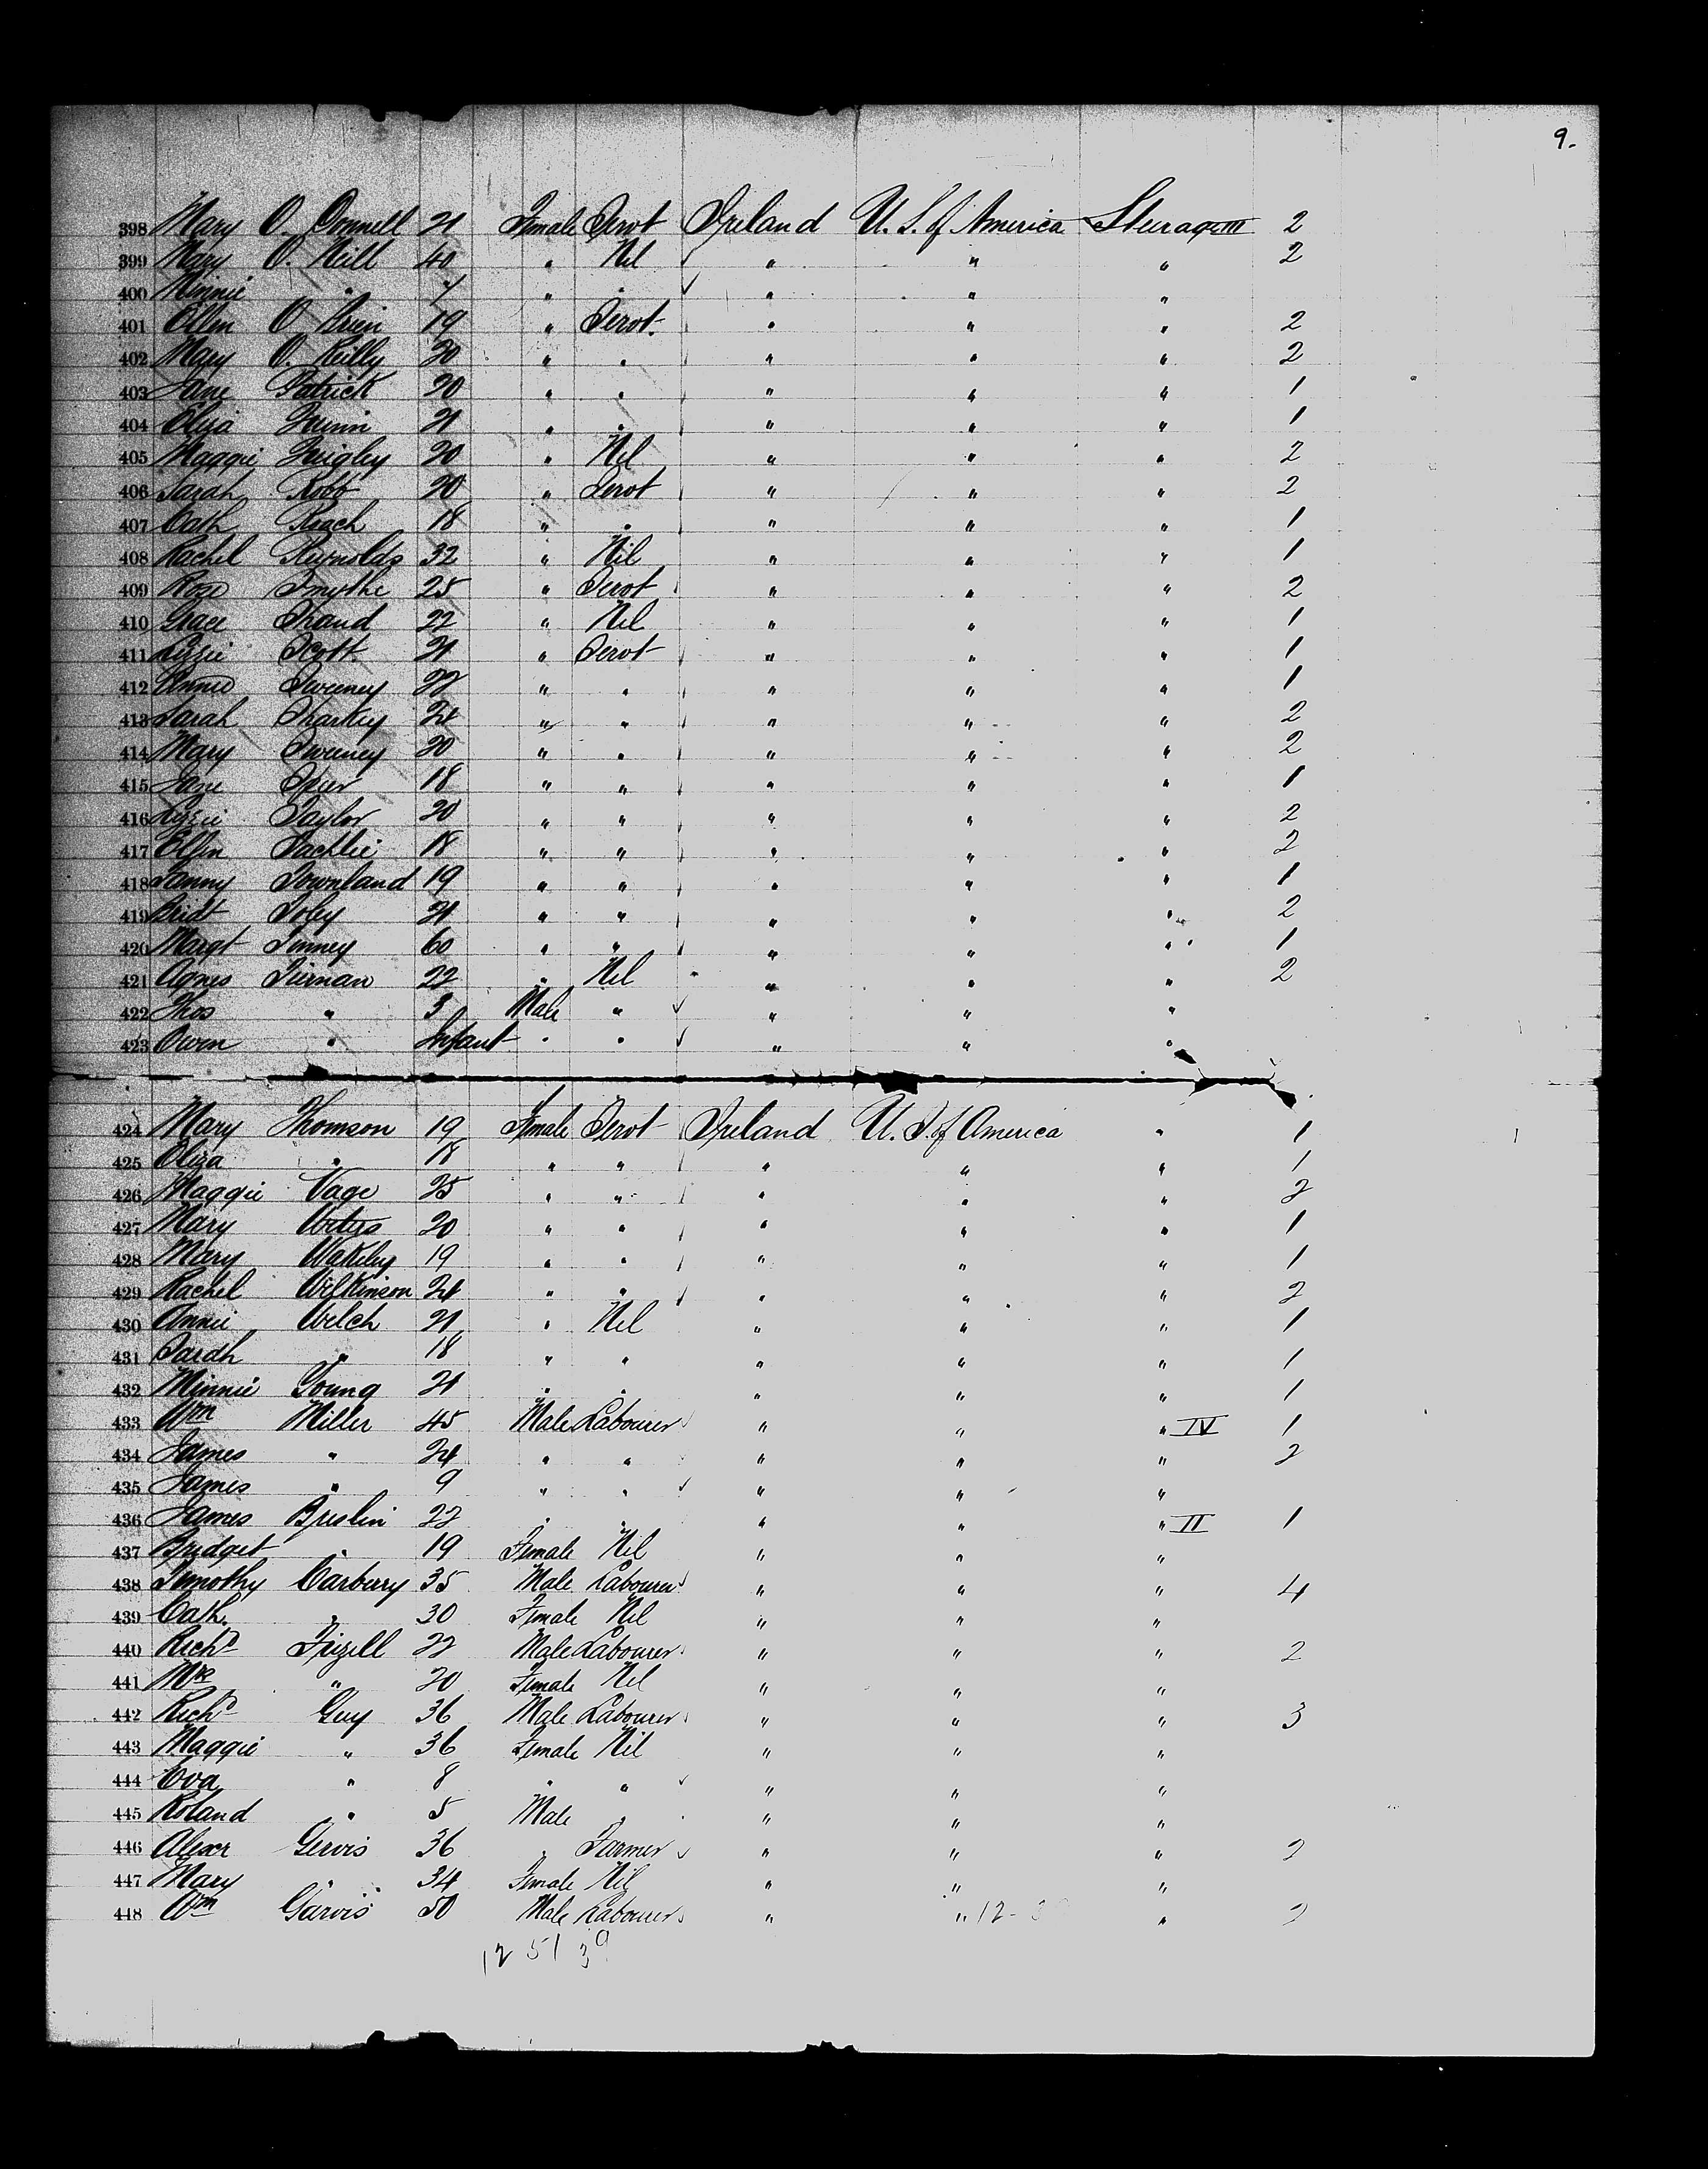 9.
398 Mary O. Donnell 21 Female Servt Ireland U. S. of America Steerage III 2
399 Mary O. Neill 40 " Nil " " " 2
400 Minnie " 7 " " " " "
401 Ellen O. Brien 19 " Servt " " " 2
402 Mary O. Reilly 20 " " " " " 2
403 Jane Patrick 20 " " " " " 1
404 Eliza Quinn 21 " " " " " 1
405 Maggie Quigley 20 " Nil " " " 2
406 Sarah Robb 20 " Servt " " " 2
407 Cath Roach 18 " " " " " 1
408 Rachel Reynolds 32 " Nil " " " 1
409 Rose Smythe 25 " Servt " " " 2
410 Grace Shand 22 " Nil " " " 1
411 Lizzie Scott 21 " Servt " " " 1
412 Annie Sweeney 22 " " " " " 1
413 Sarah Sharkey 24 " " " " " 2
414 Mary Sweeney 20 " " " " " 2
415 Jane Speer 18 " " " " " 1
416 Lizzie Taylor 20 " " " " " 2
417 Ellen 18 " " " " " 2
418 Fanny Townland 19 " " " " " 1
419 Bridt Toley 21 " " " " " 2
420 Margt Tinney 60 " " " " " 1
421 Agnes Tiernan 22 " Nil " " " 2
422 Thos " 3 Male " " " "
423 Owen " Infant " " " " "
424 Mary Thomson 19 Female Servt Ireland U. S. of America " 1
425 Eliza " 18 " " " " " 1
426 Maggie Vage 25 " " " " " 2
427 Mary 20 " " " " " 1
428 Mary Wakeley 19 " " " " " 1
429 Rachel Wilkinson 24 " " " " " 2
430 Annie Welch 21 " Nil " " " 1
431 Sarah " 18 " " " " " 1
432 Minnie Young 21 " " " " " 1
433 Wm Miller 45 Male Labourer " " " IV 1
434 James " 24 " " " " " 2
435 James " 9 " " " " "
436 James Breslin 22 " " " " " II 1
437 Bridget " 19 Female Nil " " "
438 Timothy Carberry 35 Male Labourer " " " 4
439 Cath. " 30 Female Nil " " "
440 Richd Frizell 22 Male Labourer " " " 2
441 Mrs " 20 Female Nil " " "
442 Richd Guy 36 Male Labourer " " " 3
443 Maggie " 36 Female Nil " " "
444 Eva " 8 " " " " "
445 Roland " 5 Male " " " "
446 Alexr Gervis 36 " Farmer " " " 2
447 Mary " 34 Female Nil " " "
448 Wm Garvis 50 Male Labourer " " 12- " 2
12 51 39